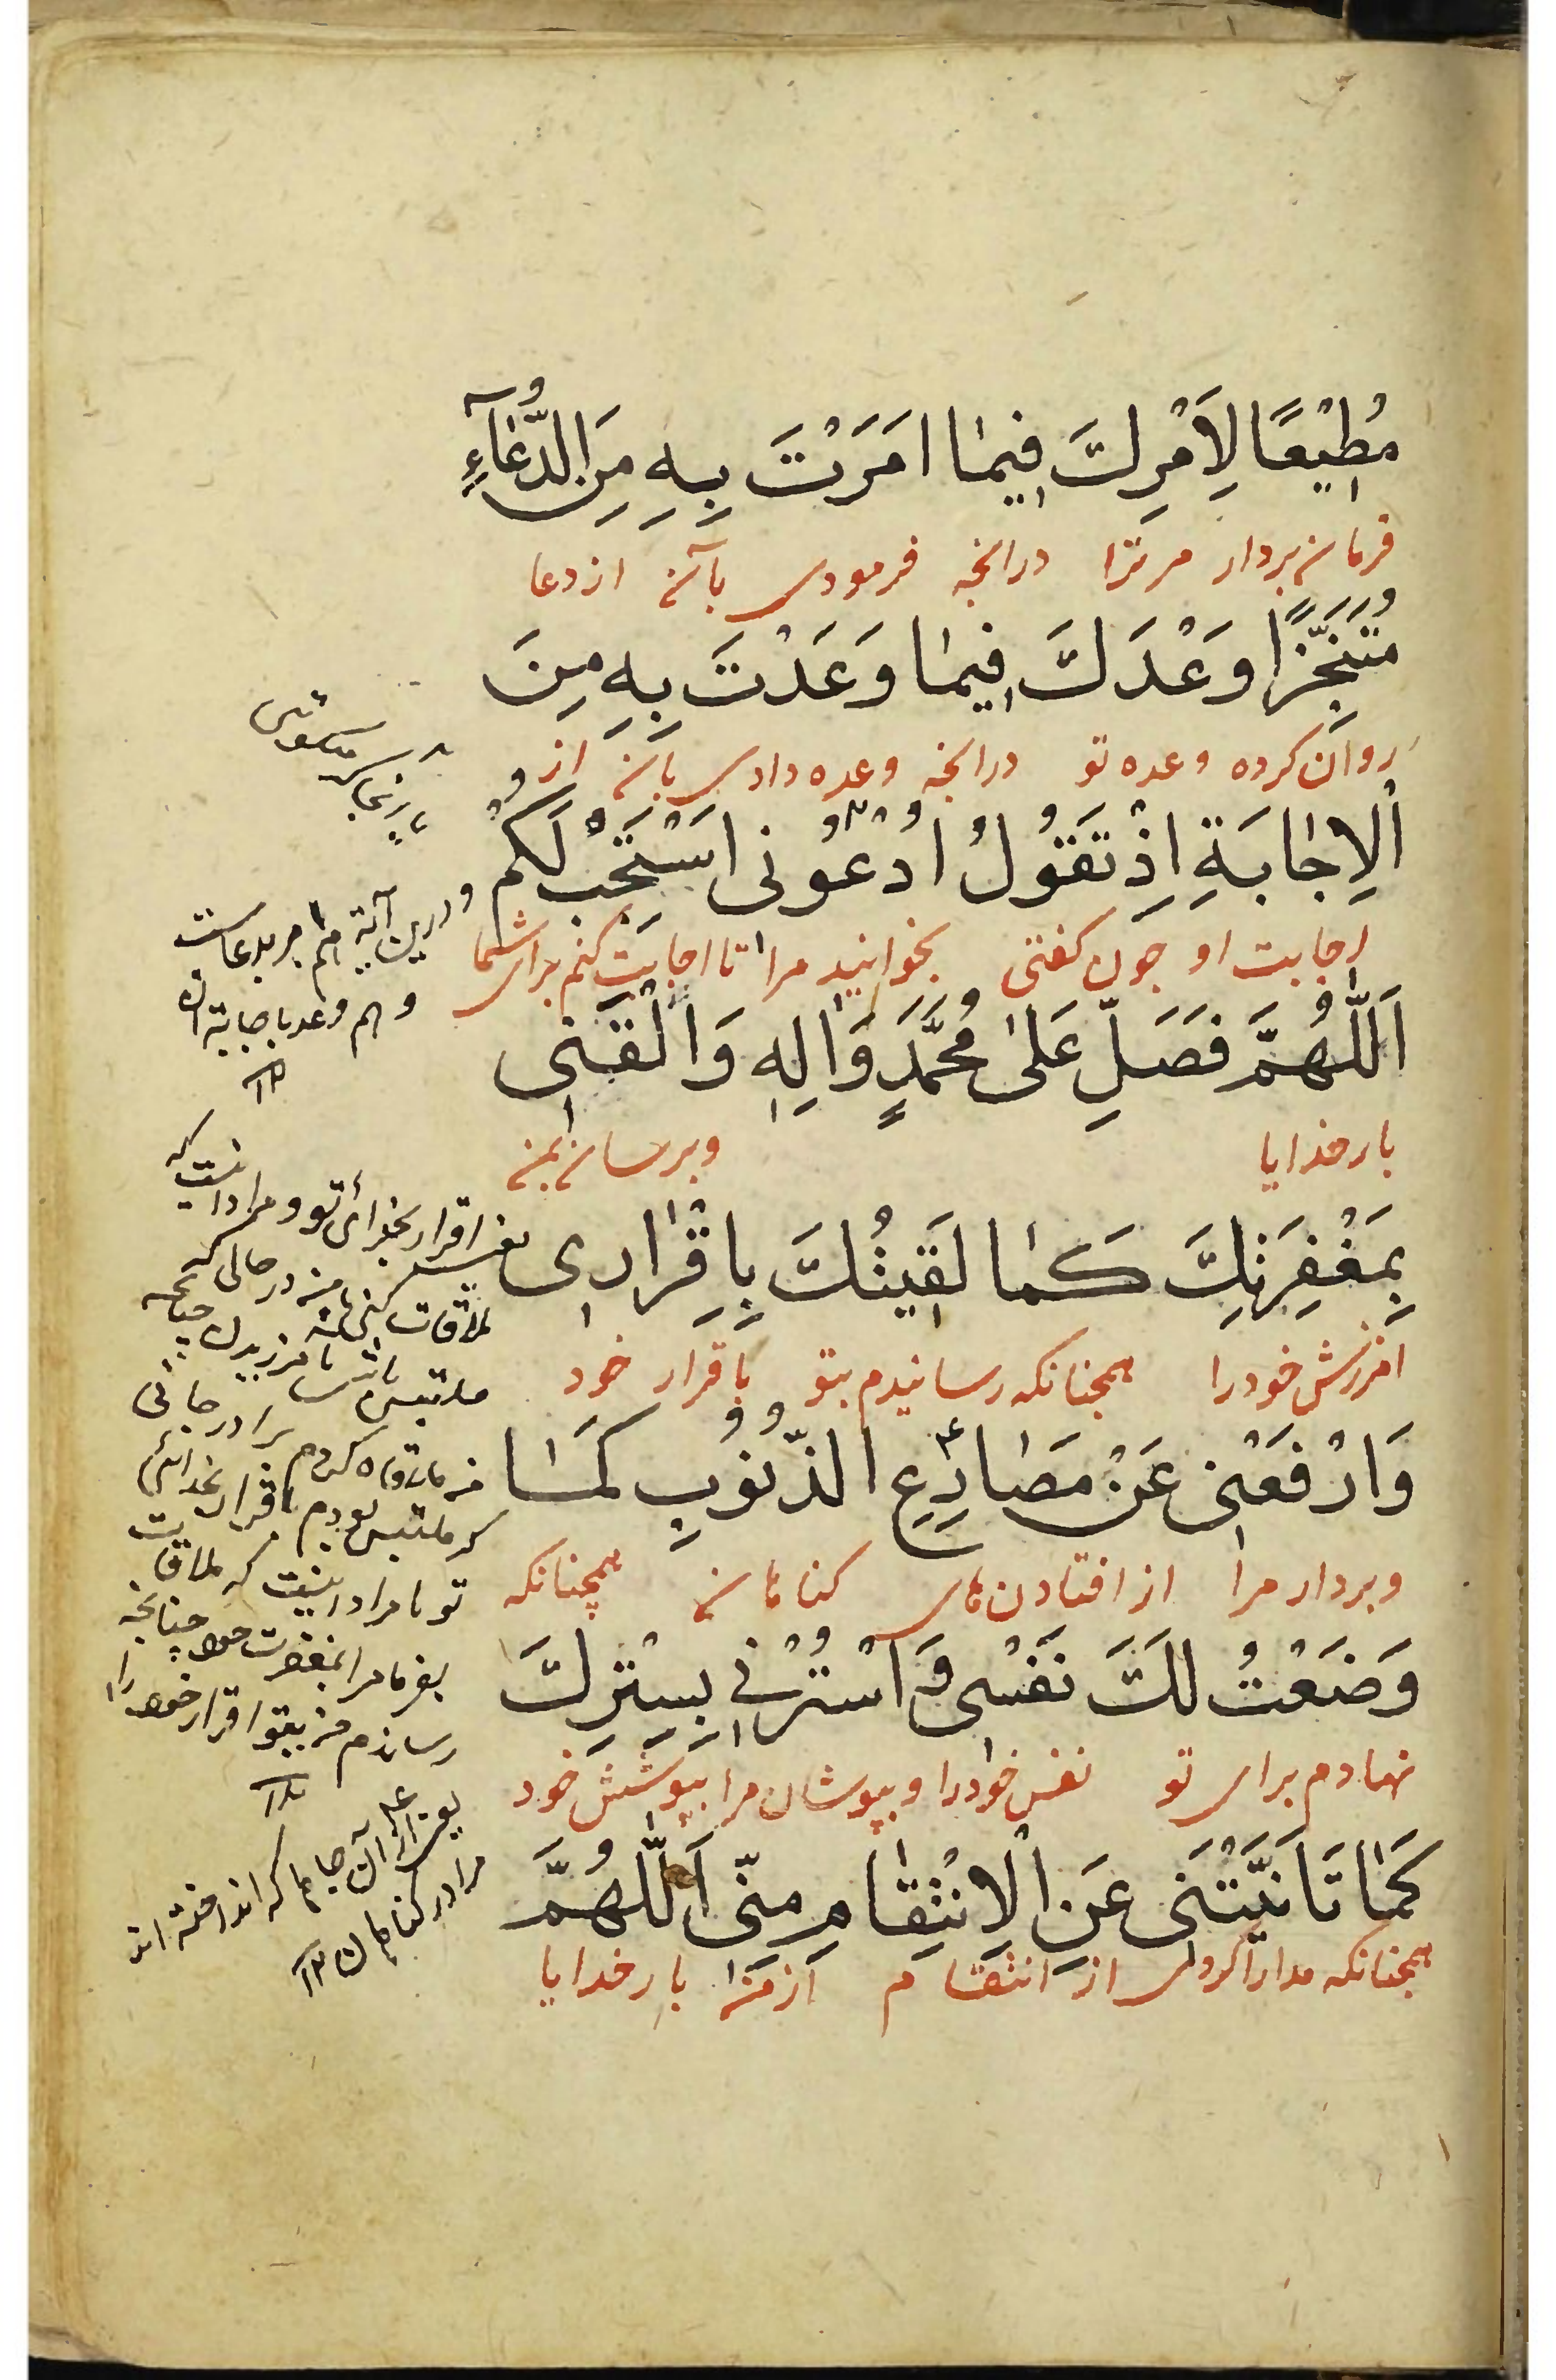 مُطِيْعًا لِاَمْرِكَ فِيمٰا امَرَتْ بِهِ مِنَ الدُّعٰآءِ
فرمان بردار مر ترا درانچه فرمودی بآن از دعا
مُتَنَجِّزًا وَعْدَكَ فِيمٰا وَعَدْتَ بِهِ مِنَ
روان کرده وعده تو درانچه وعده دادی بآن از
اْلاِجٰابَةِ اِذْ تَقُولُ اُدْعُونى اَسْتَجِبْ لَكُمْ
اجابت او چون کفتی بخوانید مرا تا اجابت کنم برای شما
اَللّٰهُمَّ فَصَلِّ عَلىٰ مُحَمَّدٍ وَاٰلِهِ وَاَلْقَنِى
بار خدایا وبرسان بمن
بِمَغْفِرَتِكَ كَمٰا لَقِيتُكَ بِاِقْرٰارِى
امرزش خود را همچنانکه رسانیدم بتو باقرار خود
وَارْفَعْنِى عَنْ مَصٰارِعِ الذُّنُوبِ كَمٰا
وبردار مرا از افتادن های کناهان همچنانکه
وَضَعْتُ لَكَ نَفْسِى وَاسْتُرْنِي بِسِتْرِكَ
نهادم برای تو نفس خود را و بپوشان مرا بپوشش خود
كَمٰا تَاَنَّيْتَنِى عَنِ اْلاِنْتِقٰامِ مِنِّى اَللّٰهُمَّ
همچنانکه مدارا کردی از انتقام از من بار خدایا
ودرین آیة هم امر بدعاست
وهم وعد باجابة ان
۱۲
یعنی اقرار بخدائی تو و مراد اینست که
ملاقات کنی من در حالی که
ملتبس باشی بامرزیدن چنانچه
که ملتبس بودم باقرار بخدائی
تو یا مراد اینست که ملاقات
بفرما مرا بمغفرت خود چنانچه
رساندم من بتو اقرار خود را
۱۲
یعنی از آن جاها که انداخته اند
مرا در کناهان ۱۲